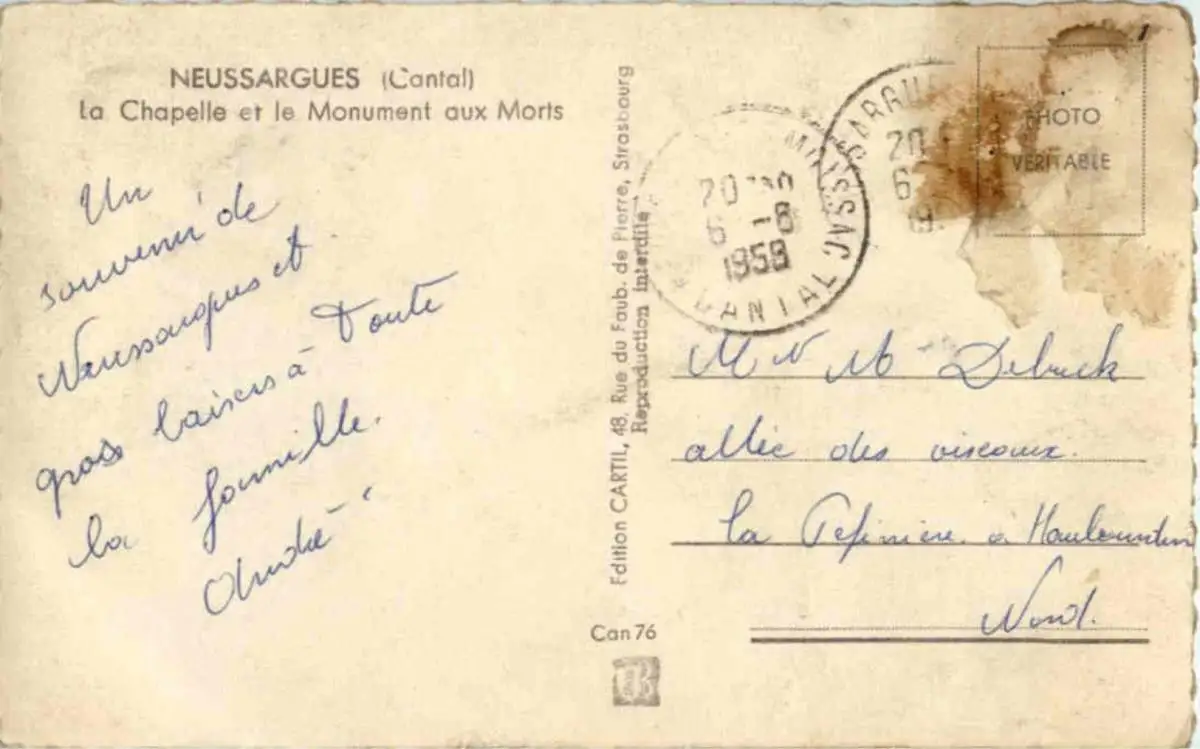 NEUSSARGUES (Cantal)
La Chapelle et le Monument aux Morts
Un
souvenir de
Neussargues et
gros baisers à toute
la famille.
André
Edition CARTIL, 48, Rue du Faub. de Pierre, Strasbourg
Reproduction interdite
Can 76
PHOTO
VERITABLE
20
6 -8
1958
MOISSAC
CANTAL
SARGU
20
6
19
M M Debuck
allée des oiseaux.
la Pépinière à Haubourdin
Nord.